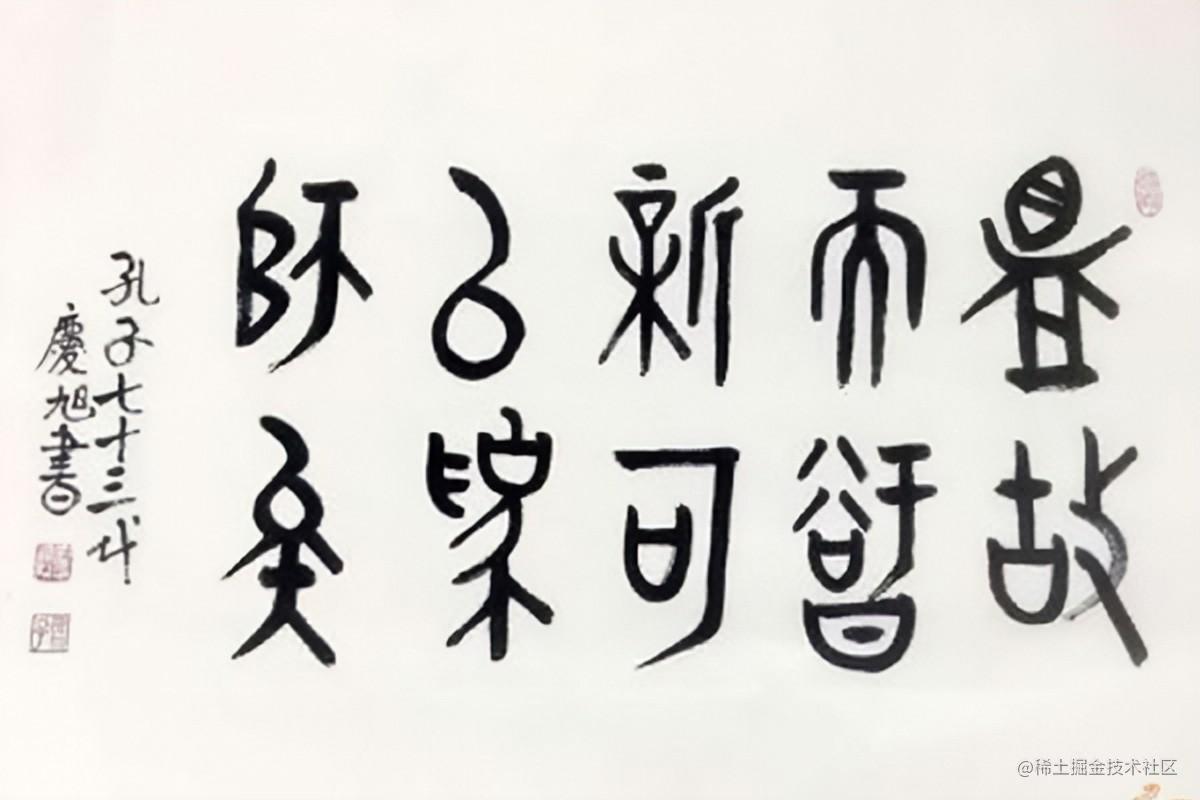 昷故
而智
新可
以為
師矣
孔子七十三代
慶旭書
@稀土掘金技术社区